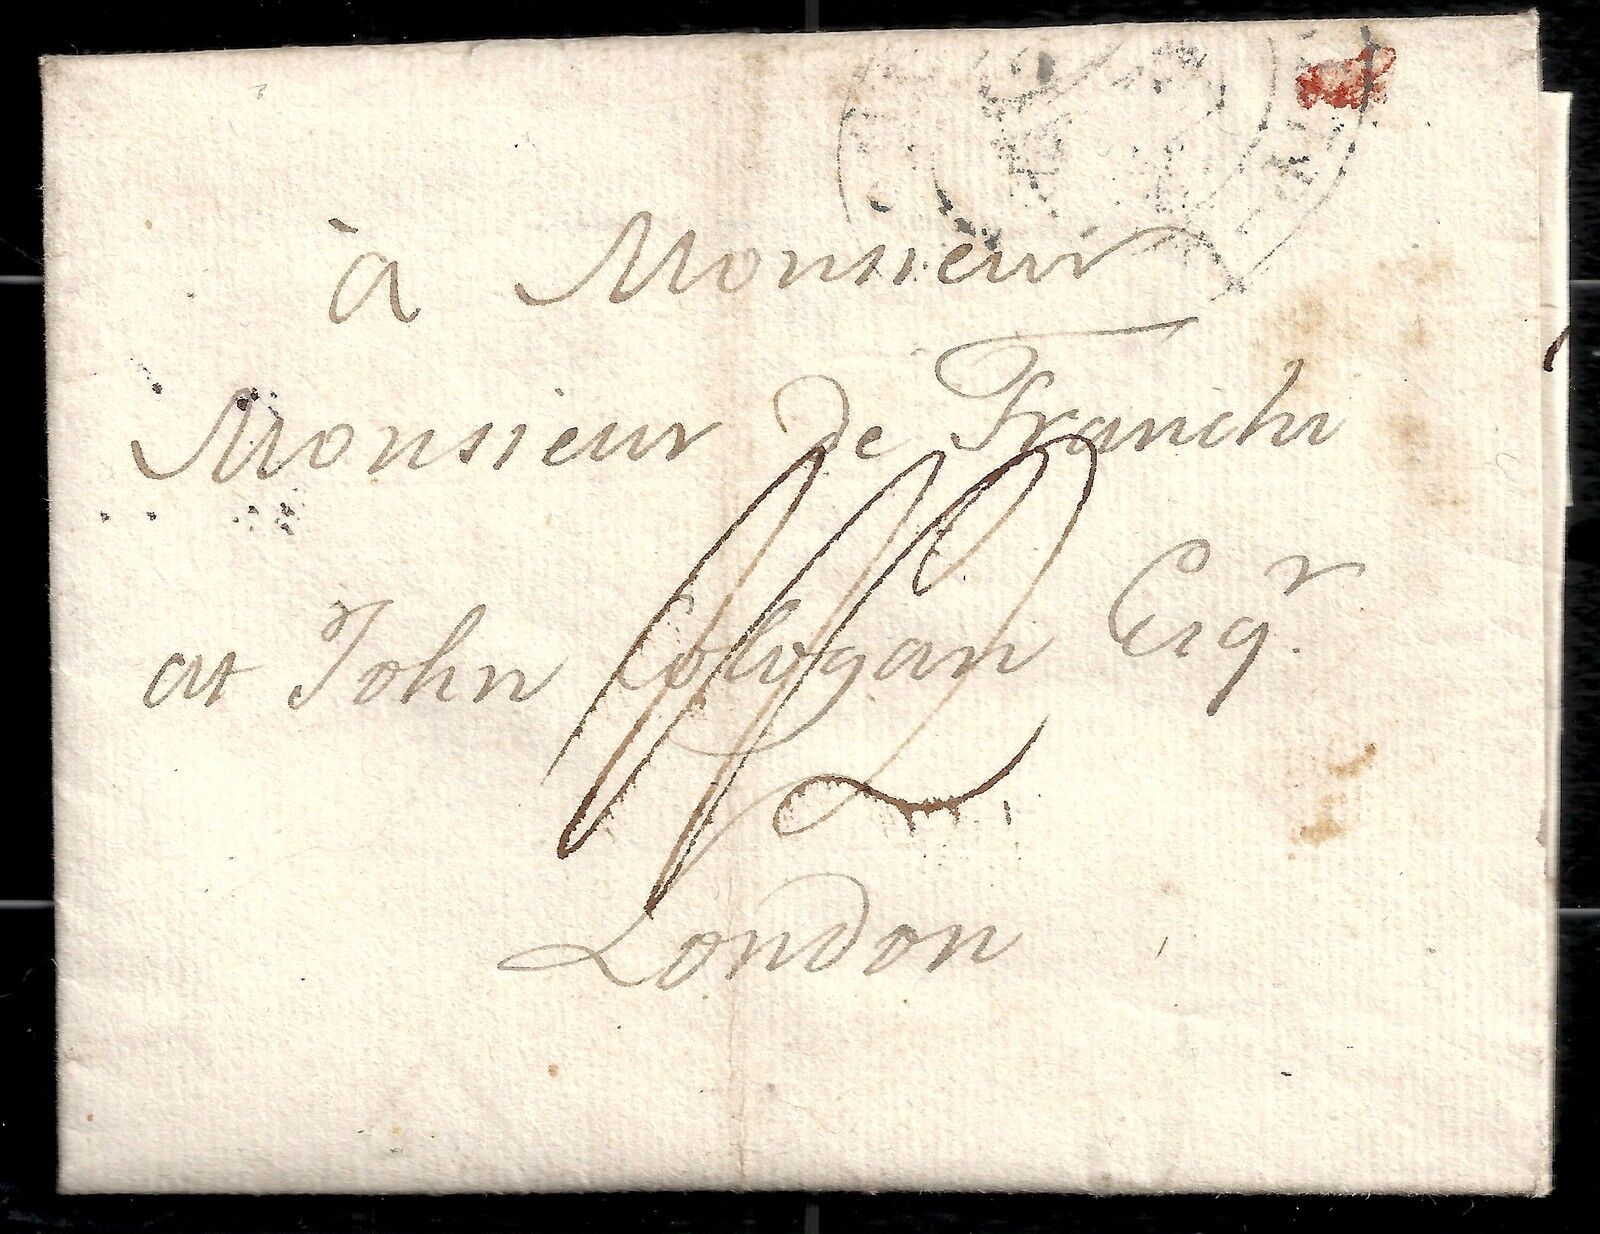 à Monsieur
Monsieur de Franchi
at John Cologan Esqr.
London